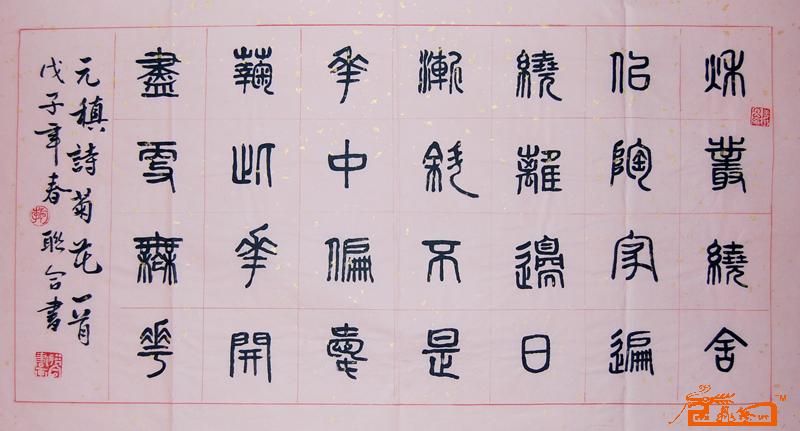 秌叢繞舍
佀陶家遍
繞離邊日
漸斜不是
華中偏愛
蘜此華開
盡更無華
元稹詩菊花一首
戊子年春聯合書